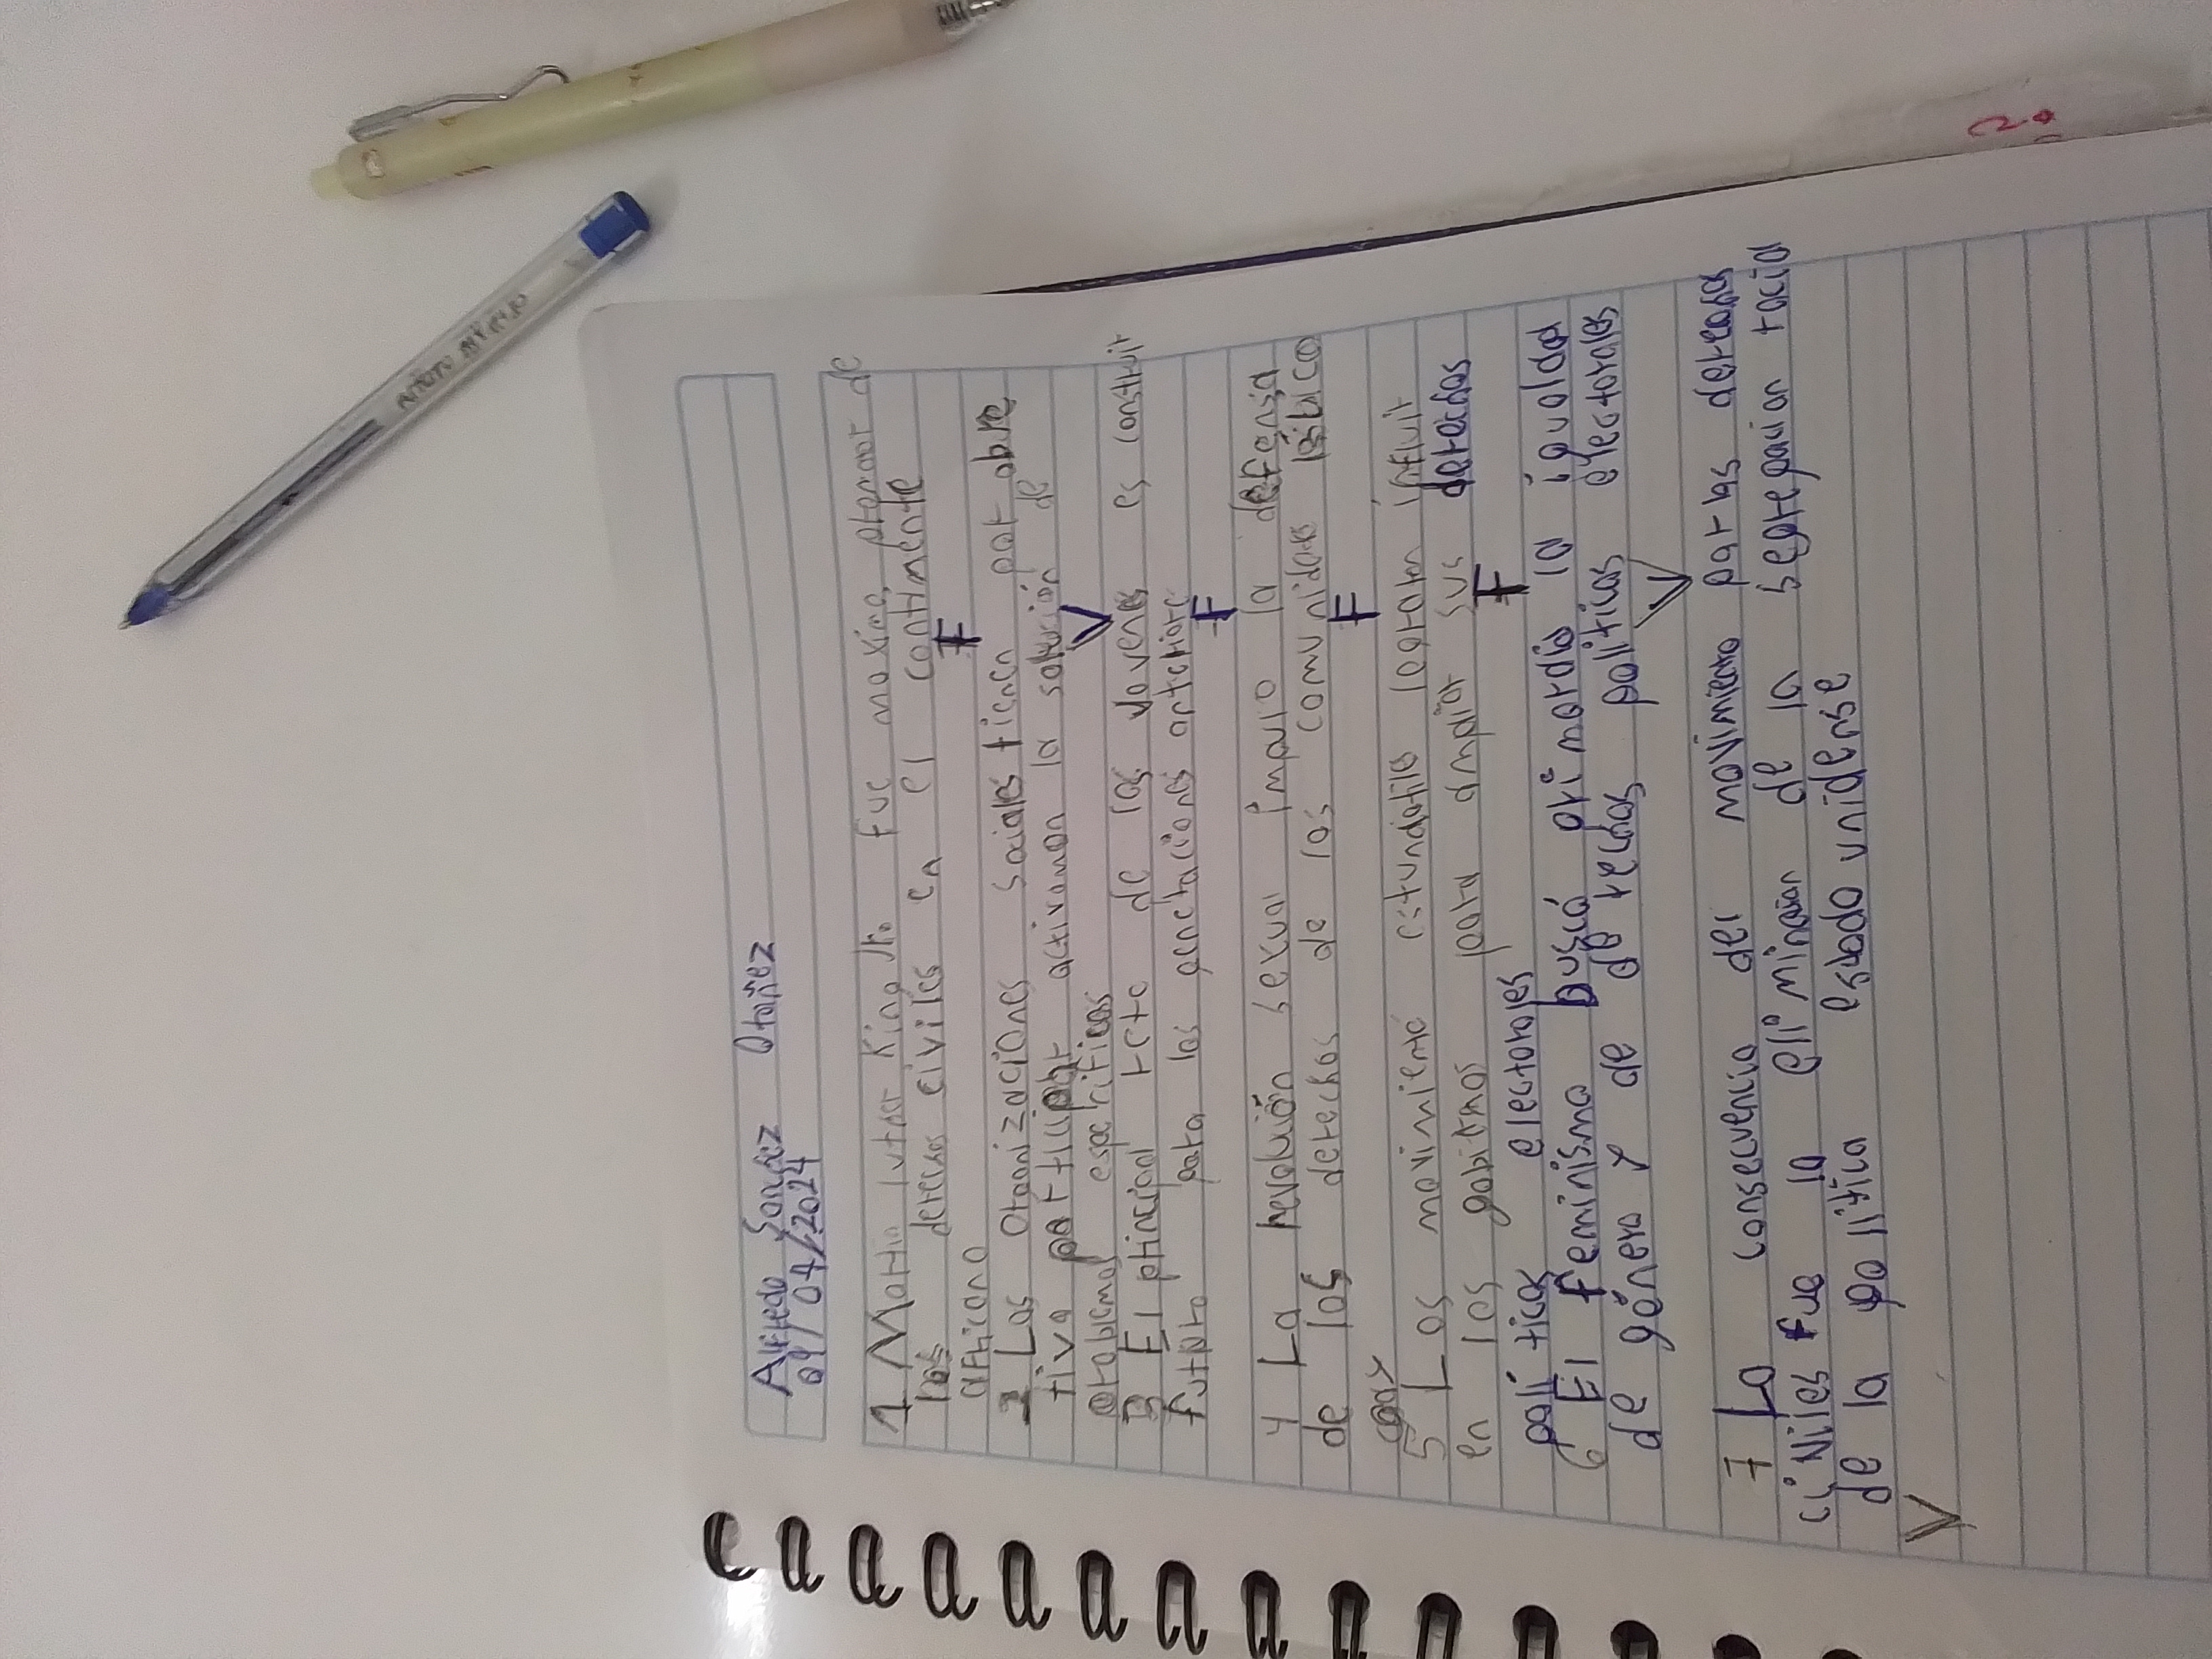 Alfredo Sanchez Ordoñez
29/04/2024
1 Martin lutser King Jr. fue maximo, ptemoor de
las derechos civiles en el contimente
africano
F
2 Las Organizaciones sociales tienen por obje
tivo participar activaman la solución de
problemas especificas
V
3 El principal reto de los Jovenes es construir
futuro para las genetaciones anteriore
F
4 La revolución sexual impulso la defensa
de los derechos de las comunidades lésbico
gay
F
5 Los movimiento estundiatiles lograron influir
en los gobiernos para ampliar sus derechos
políticas electorales
F
6 El feminismo buscó primordia la igualdad
de género y de derechos politicos electorales
V
7 La consecuencia del movimiento por los derechos
ciNiles fue la eliminaion de la segregacion racial
de la política estado unidense
V